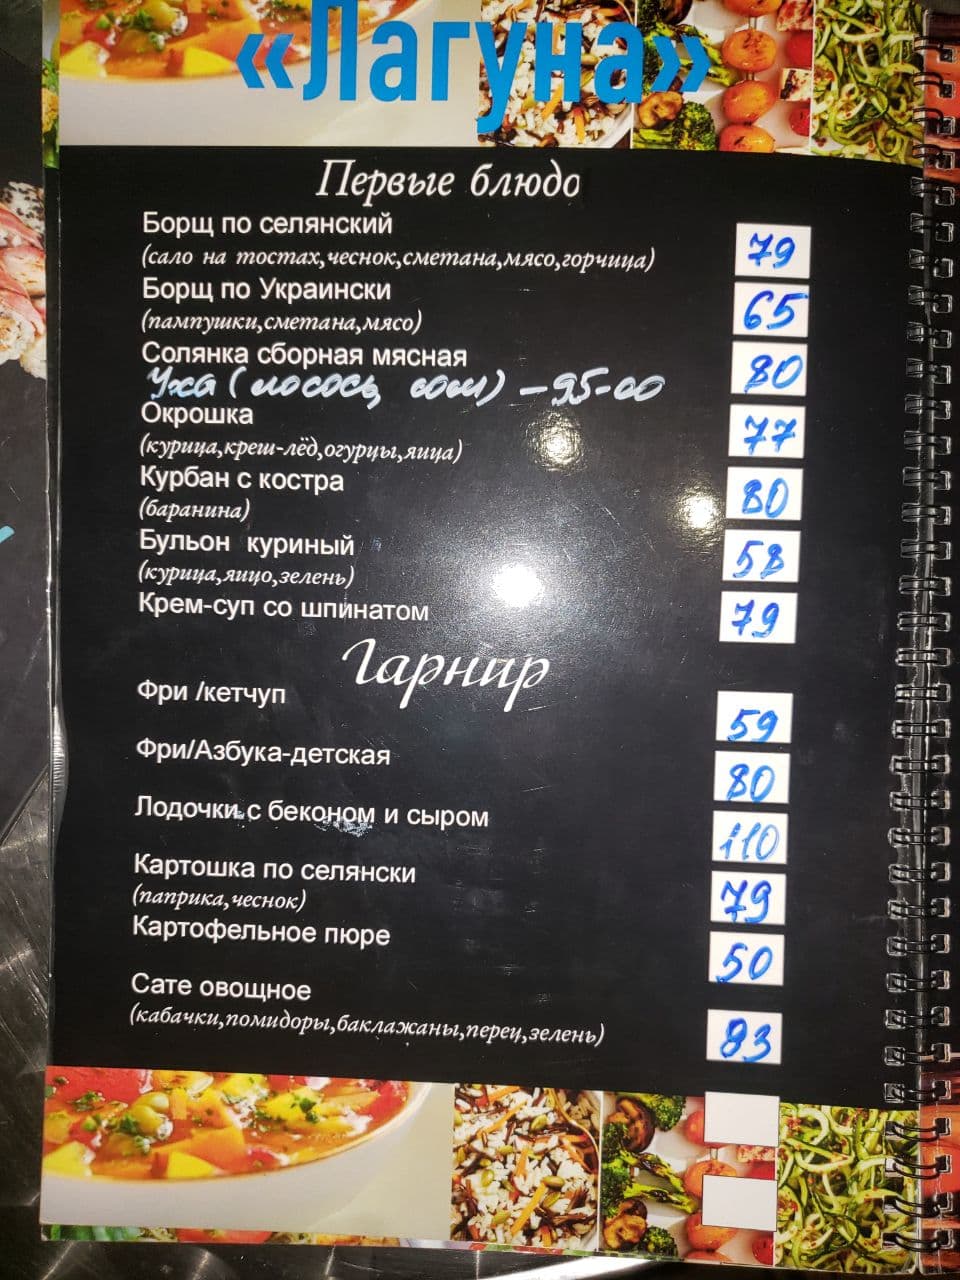 «Лагуна»
Первые блюдо
Борщ по селянский
(сало на тостах,чеснок,сметана,мясо,горчица) 79
Борщ по Украински 65
(пампушки,сметана,мясо)
Солянка сборная мясная 80
Уха (лосось, сом) – 95-00
Окрошка 77
(курица,креш-лёд,огурцы,яица)
Курбан с костра 80
(баранина)
Бульон куриный 58
(курица,яицо,зелень)
Крем-суп со шпинатом 79
Гарнир
Фри /кетчуп 59
Фри/Азбука-детская 80
Лодочки с беконом и сыром 110
Картошка по селянски 79
(паприка,чеснок)
Картофельное пюре 50
Сате овощное
(кабачки,помидоры,баклажаны,перец,зелень) 93